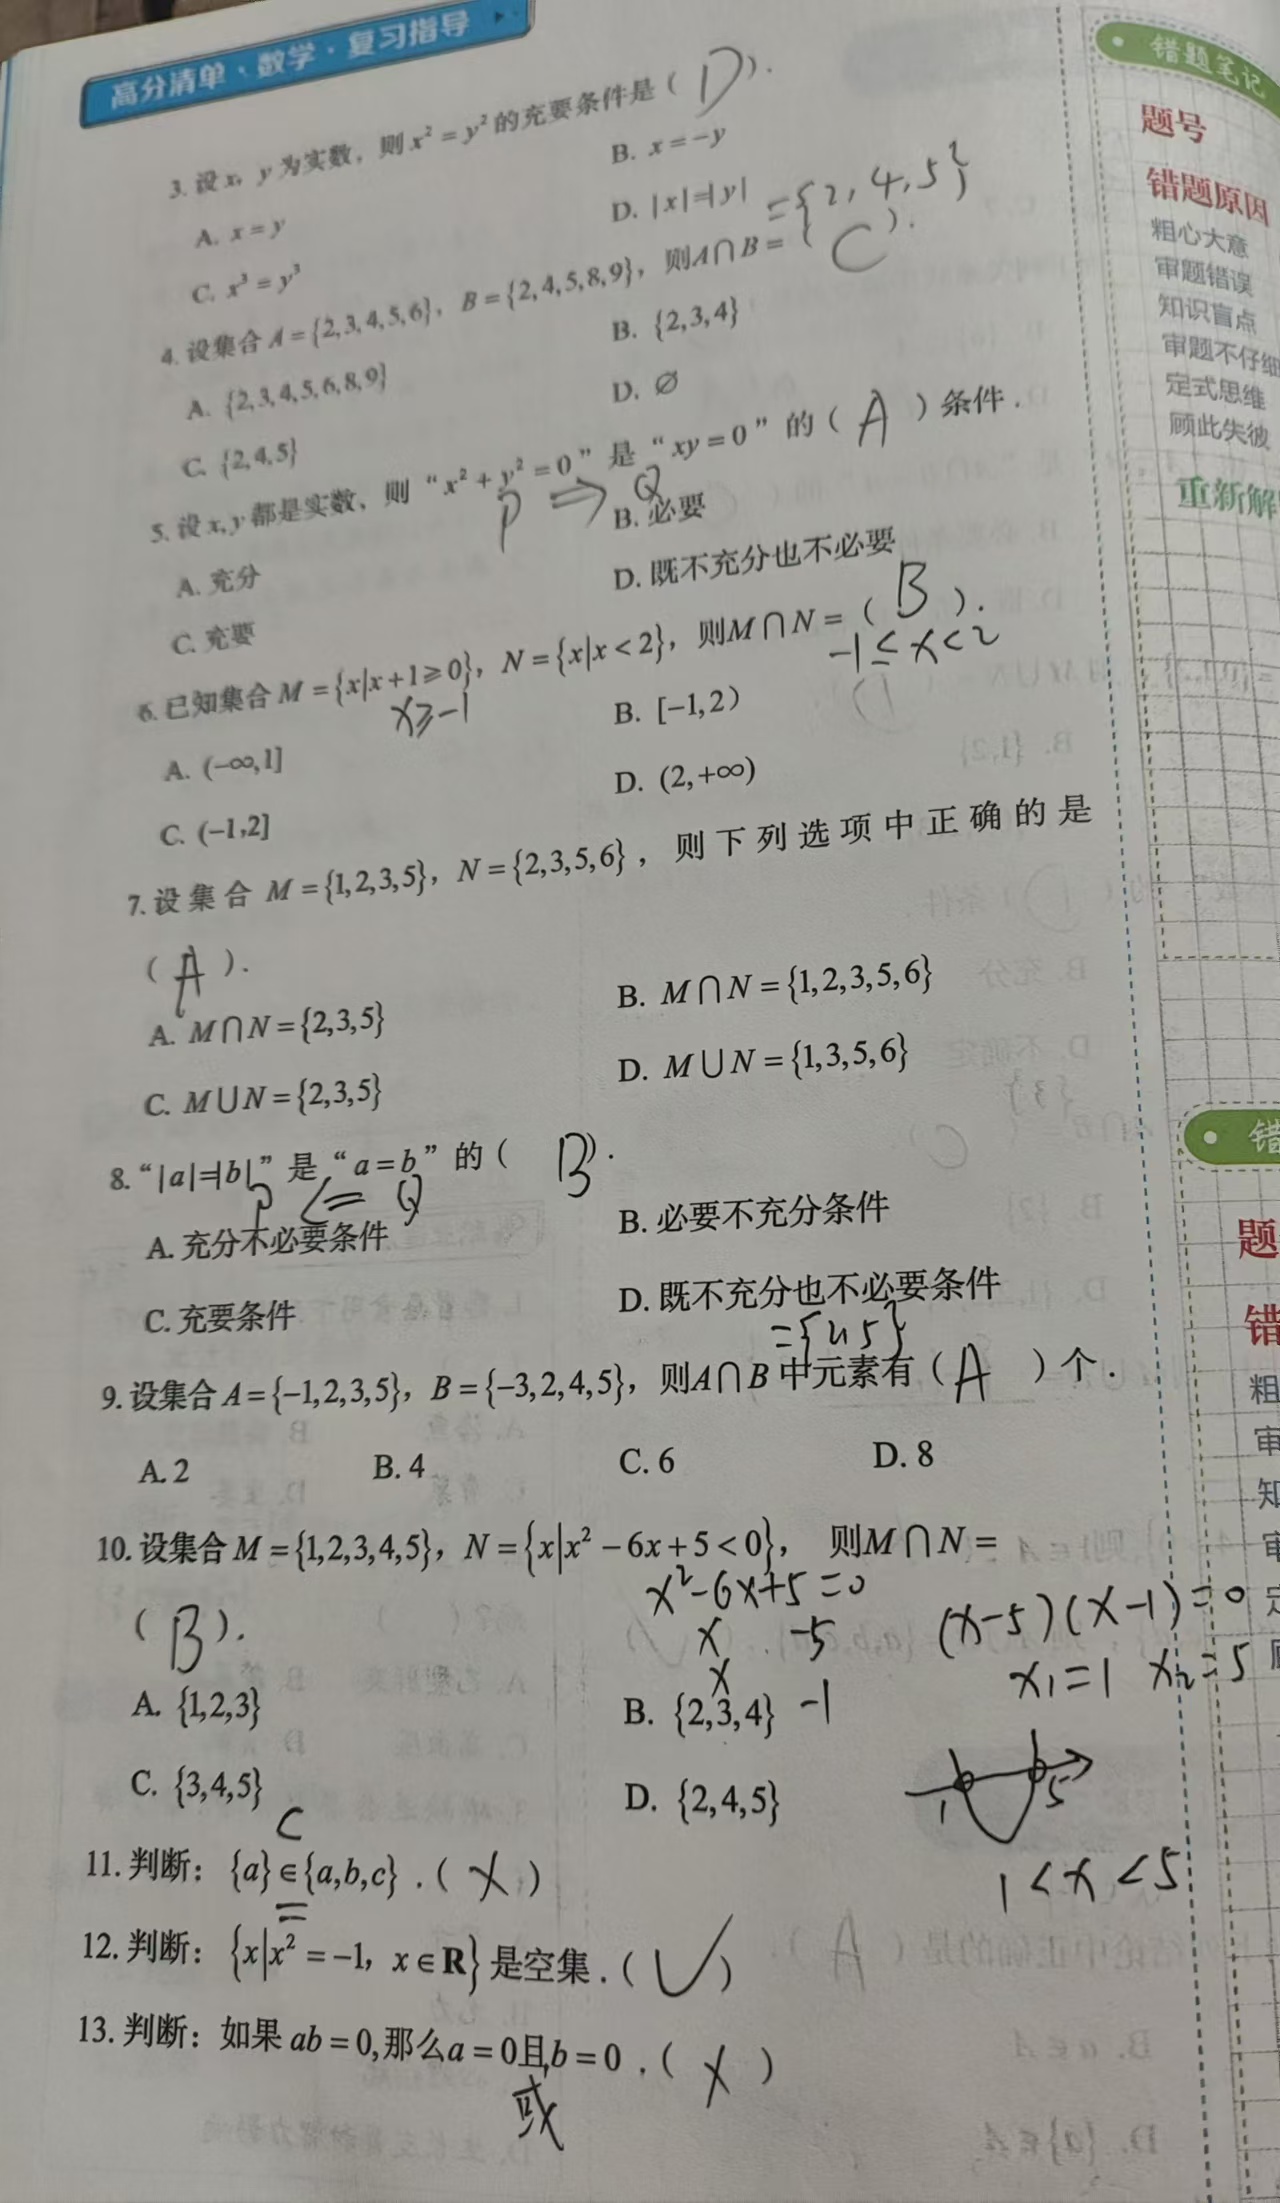 高分清单·数学·复习指导
3. 设x, y为实数，则x² = y²的充要条件是（ D ）.
A. x = y
B. x = −y
C. x³ = y³
D. |x|=|y|
={2, 4, 5}
4. 设集合 A = {2,3,4,5,6}，B = {2,4,5,8,9}，则A∩B =（ C ）.
A. {2,3,4,5,6,8,9}
B. {2,3,4}
C. {2,4,5}
D. ∅
5. 设 x, y 都是实数，则“x² + y² = 0”是“xy = 0”的（ A ）条件.
P ⇒ Q
A. 充分
B. 必要
C. 充要
D. 既不充分也不必要
6. 已知集合 M = {x|x+1≥0}，N = {x|x<2}，则M∩N =（ B ）.
x≥-1
-1≤x<2
A. (−∞,1]
B. [−1,2)
C. (−1,2]
D. (2,+∞)
7. 设集合 M = {1,2,3,5}，N = {2,3,5,6}，则下列选项中正确的是
（ A ）.
A. M∩N = {2,3,5}
B. M∩N = {1,2,3,5,6}
C. M∪N = {2,3,5}
D. M∪N = {1,3,5,6}
8. “|a|=|b|”是“a = b”的（ B ）.
P ⇐ Q
A. 充分不必要条件
B. 必要不充分条件
C. 充要条件
D. 既不充分也不必要条件
9. 设集合 A = {−1,2,3,5}，B = {−3,2,4,5}，则A∩B 中元素有（ A ）个.
A. 2
B. 4
C. 6
D. 8
10. 设集合 M = {1,2,3,4,5}，N = {x|x² − 6x + 5 < 0}，则M∩N =
（ B ）.
x²-6x+5=0
x -5
x -1
(x-5)(x-1)=0
x₁=1 x₂=5
A. {1,2,3}
B. {2,3,4}
C. {3,4,5}
D. {2,4,5}
1 5
1<x<5
11. 判断：{a}∈{a,b,c}.（ X ）
⊆
12. 判断：{x|x² = −1，x∈R}是空集.（ √ ）
13. 判断：如果 ab = 0,那么a = 0且b = 0.（ X ）
或
错题笔记
题号
错题原因
粗心大意
审题错误
知识盲点
审题不仔细
定式思维
顾此失彼
重新解
错
题
错
粗
审
知
审
定